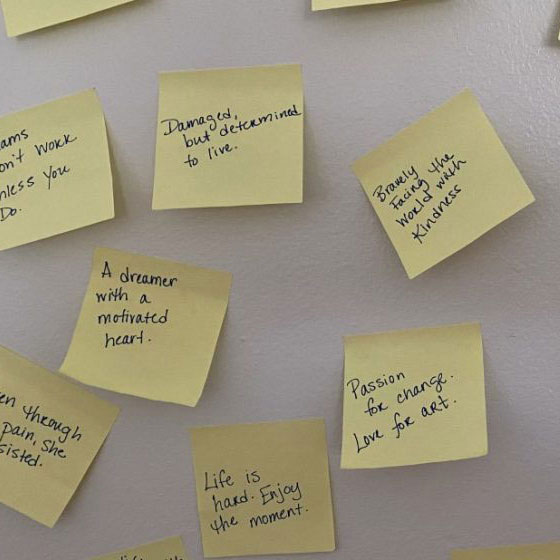 Damaged,
but determined
to live.
ams
on't work
nless you
Do.
Bravely
Facing the
world with
Kindness
A dreamer
with a
motivated
heart.
Passion
for change.
Love for art.
en through
pain, she
sisted.
Life is
hard. Enjoy
the moment.